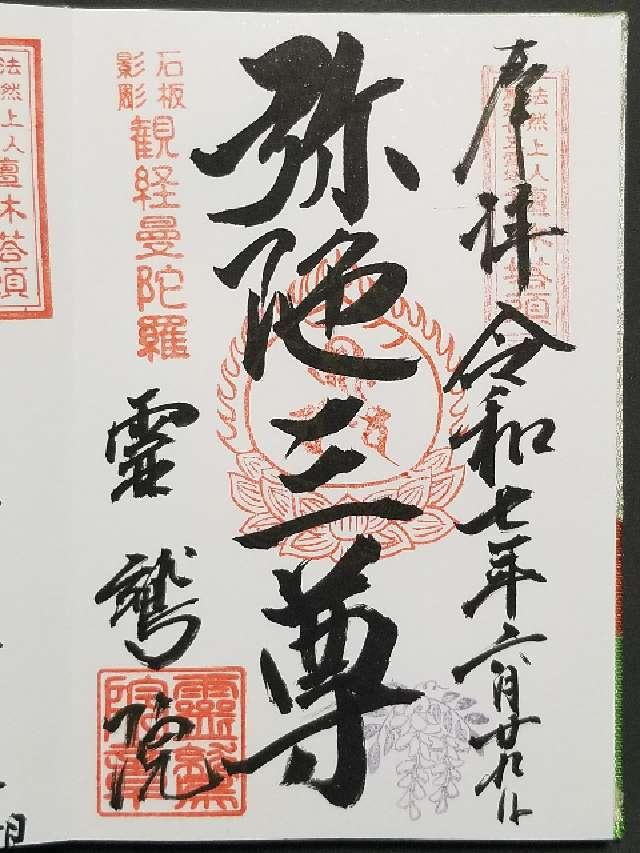 奉拝 令和七年六月廿九日
法然上人霊木塔頭
弥陀三尊
石板
影彫
観経曼陀羅
霊鷲院
法然上人霊木塔頭